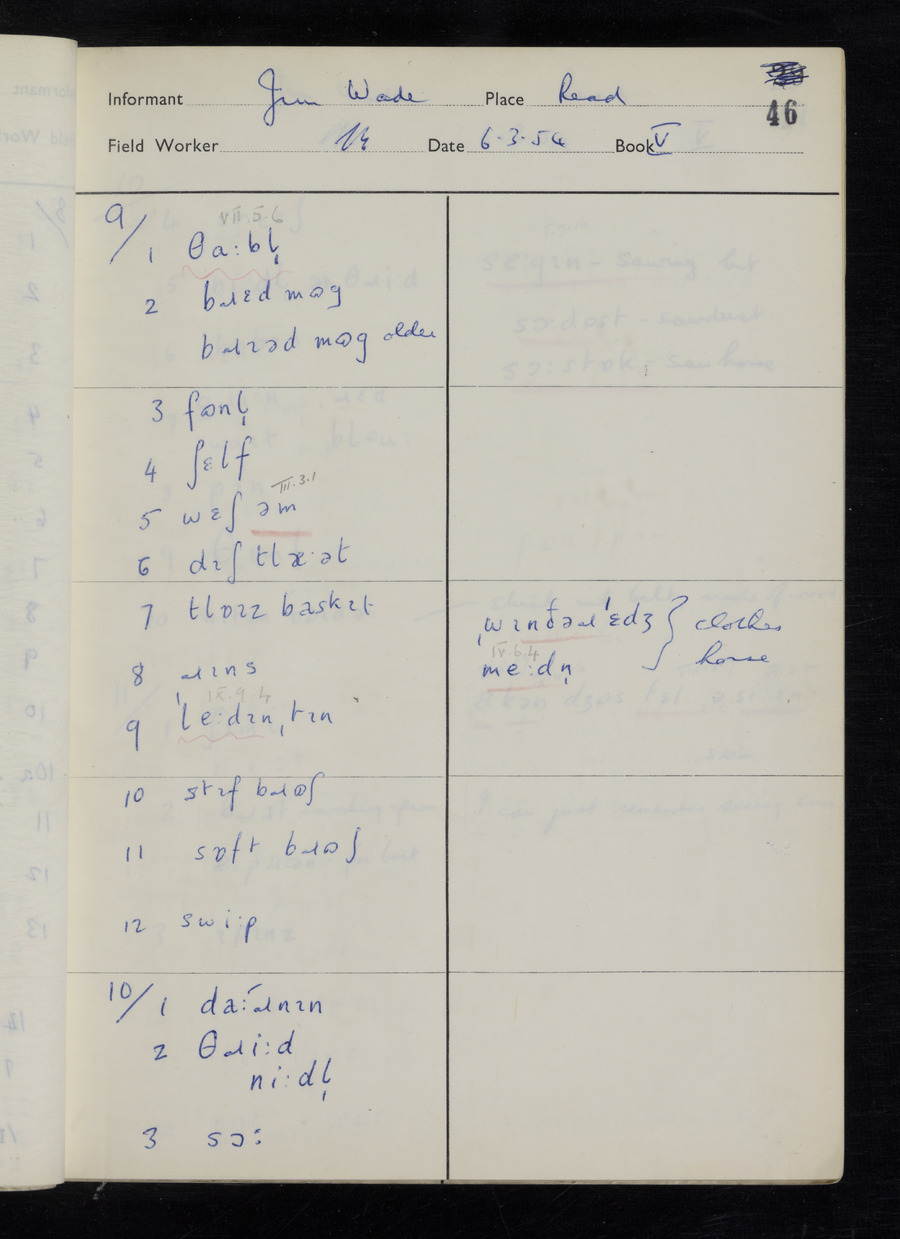 Informant Jim Wade Place Read
46
Field Worker Date 6.3.54 Book V
9/
VII.5.6
1 θa:bl̩
2 bɹɛd mɷg
bɹɪəd mɷg older
3 fɷnl̩
4 ʃɛlf
III.3.1
5 wɛʃ əm
6 dɪʃ tlɒ·ət
7 tlɒɪz baskɪt
ˌwɪndəɹˈɛdʒ } clothes
8 ɹɪns
IV.6.4
me:dn̩ house
IX.9.4
9 ˈle:dɪnˌtɪn
10 stɪf bɹɷʃ
11 sɒft bɹɷʃ
12 swi:p
10/ 1 da:ɹnɪn
2 θɹi:d
ni:dl̩
3 sɔ: